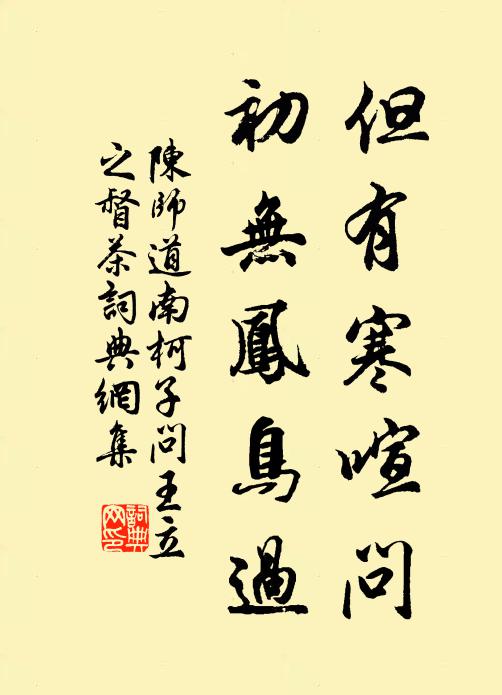 但有寒暄問
初無鳳鳥過
陳師道南柯子問王立
之督茶詞典網集
詞典
网印